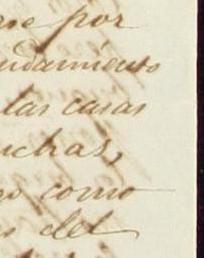 se por
udamiento
las casas
uchas,
como
del